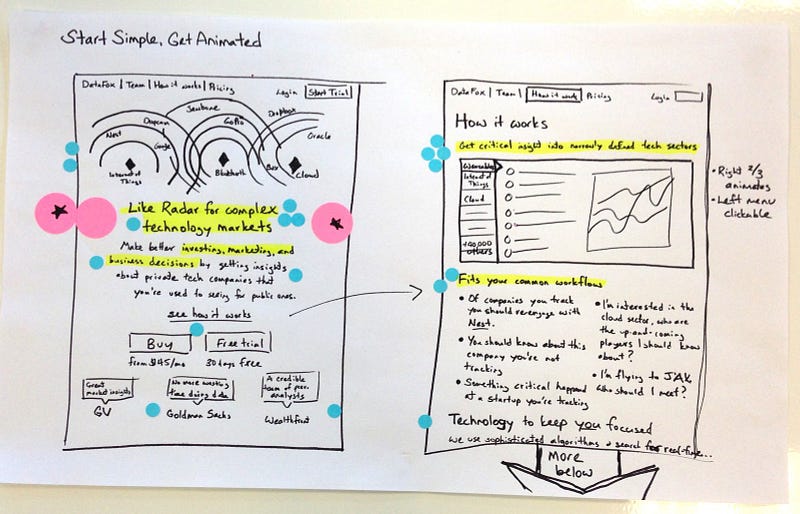 Start Simple, Get Animated
DataFox | Team | How it works | Pricing
Login
Start Trial
Jawbone
Dropbox
Dropcam
GoPro
Nest
Google
Oracle
Box
Internet of
Things
Bluetooth
Cloud
Like Radar for complex
technology markets
Make better investing, marketing, and
business decisions by getting insights
about private tech companies that
you're used to seeing for public ones.
see how it works
Buy
Free trial
from $45/mo
30 days free
Great
market insights
No more wasting
time doing data
A credible
team of peer
analysts
GV
Goldman Sachs
Wealthfront
DataFox | Team | How it works
Pricing
Login
How it works
Get critical insight into narrowly defined tech sectors
Wearables
Internet of
Things
Cloud
+100,000
others
• Right 2/3
animates
• Left menu
clickable
Fits your common workflow
• Of companies you track
you should reengage with
Nest.
• You should know about this
company you're not
tracking
• Something critical happened
at a startup you're tracking
• I'm interested in the
cloud sector, who are
the up-and-coming
players I should know
about?
• I'm flying to JFK,
who should I meet?
Technology to keep you focused
we use sophisticated algorithms + search for real-time...
More
below